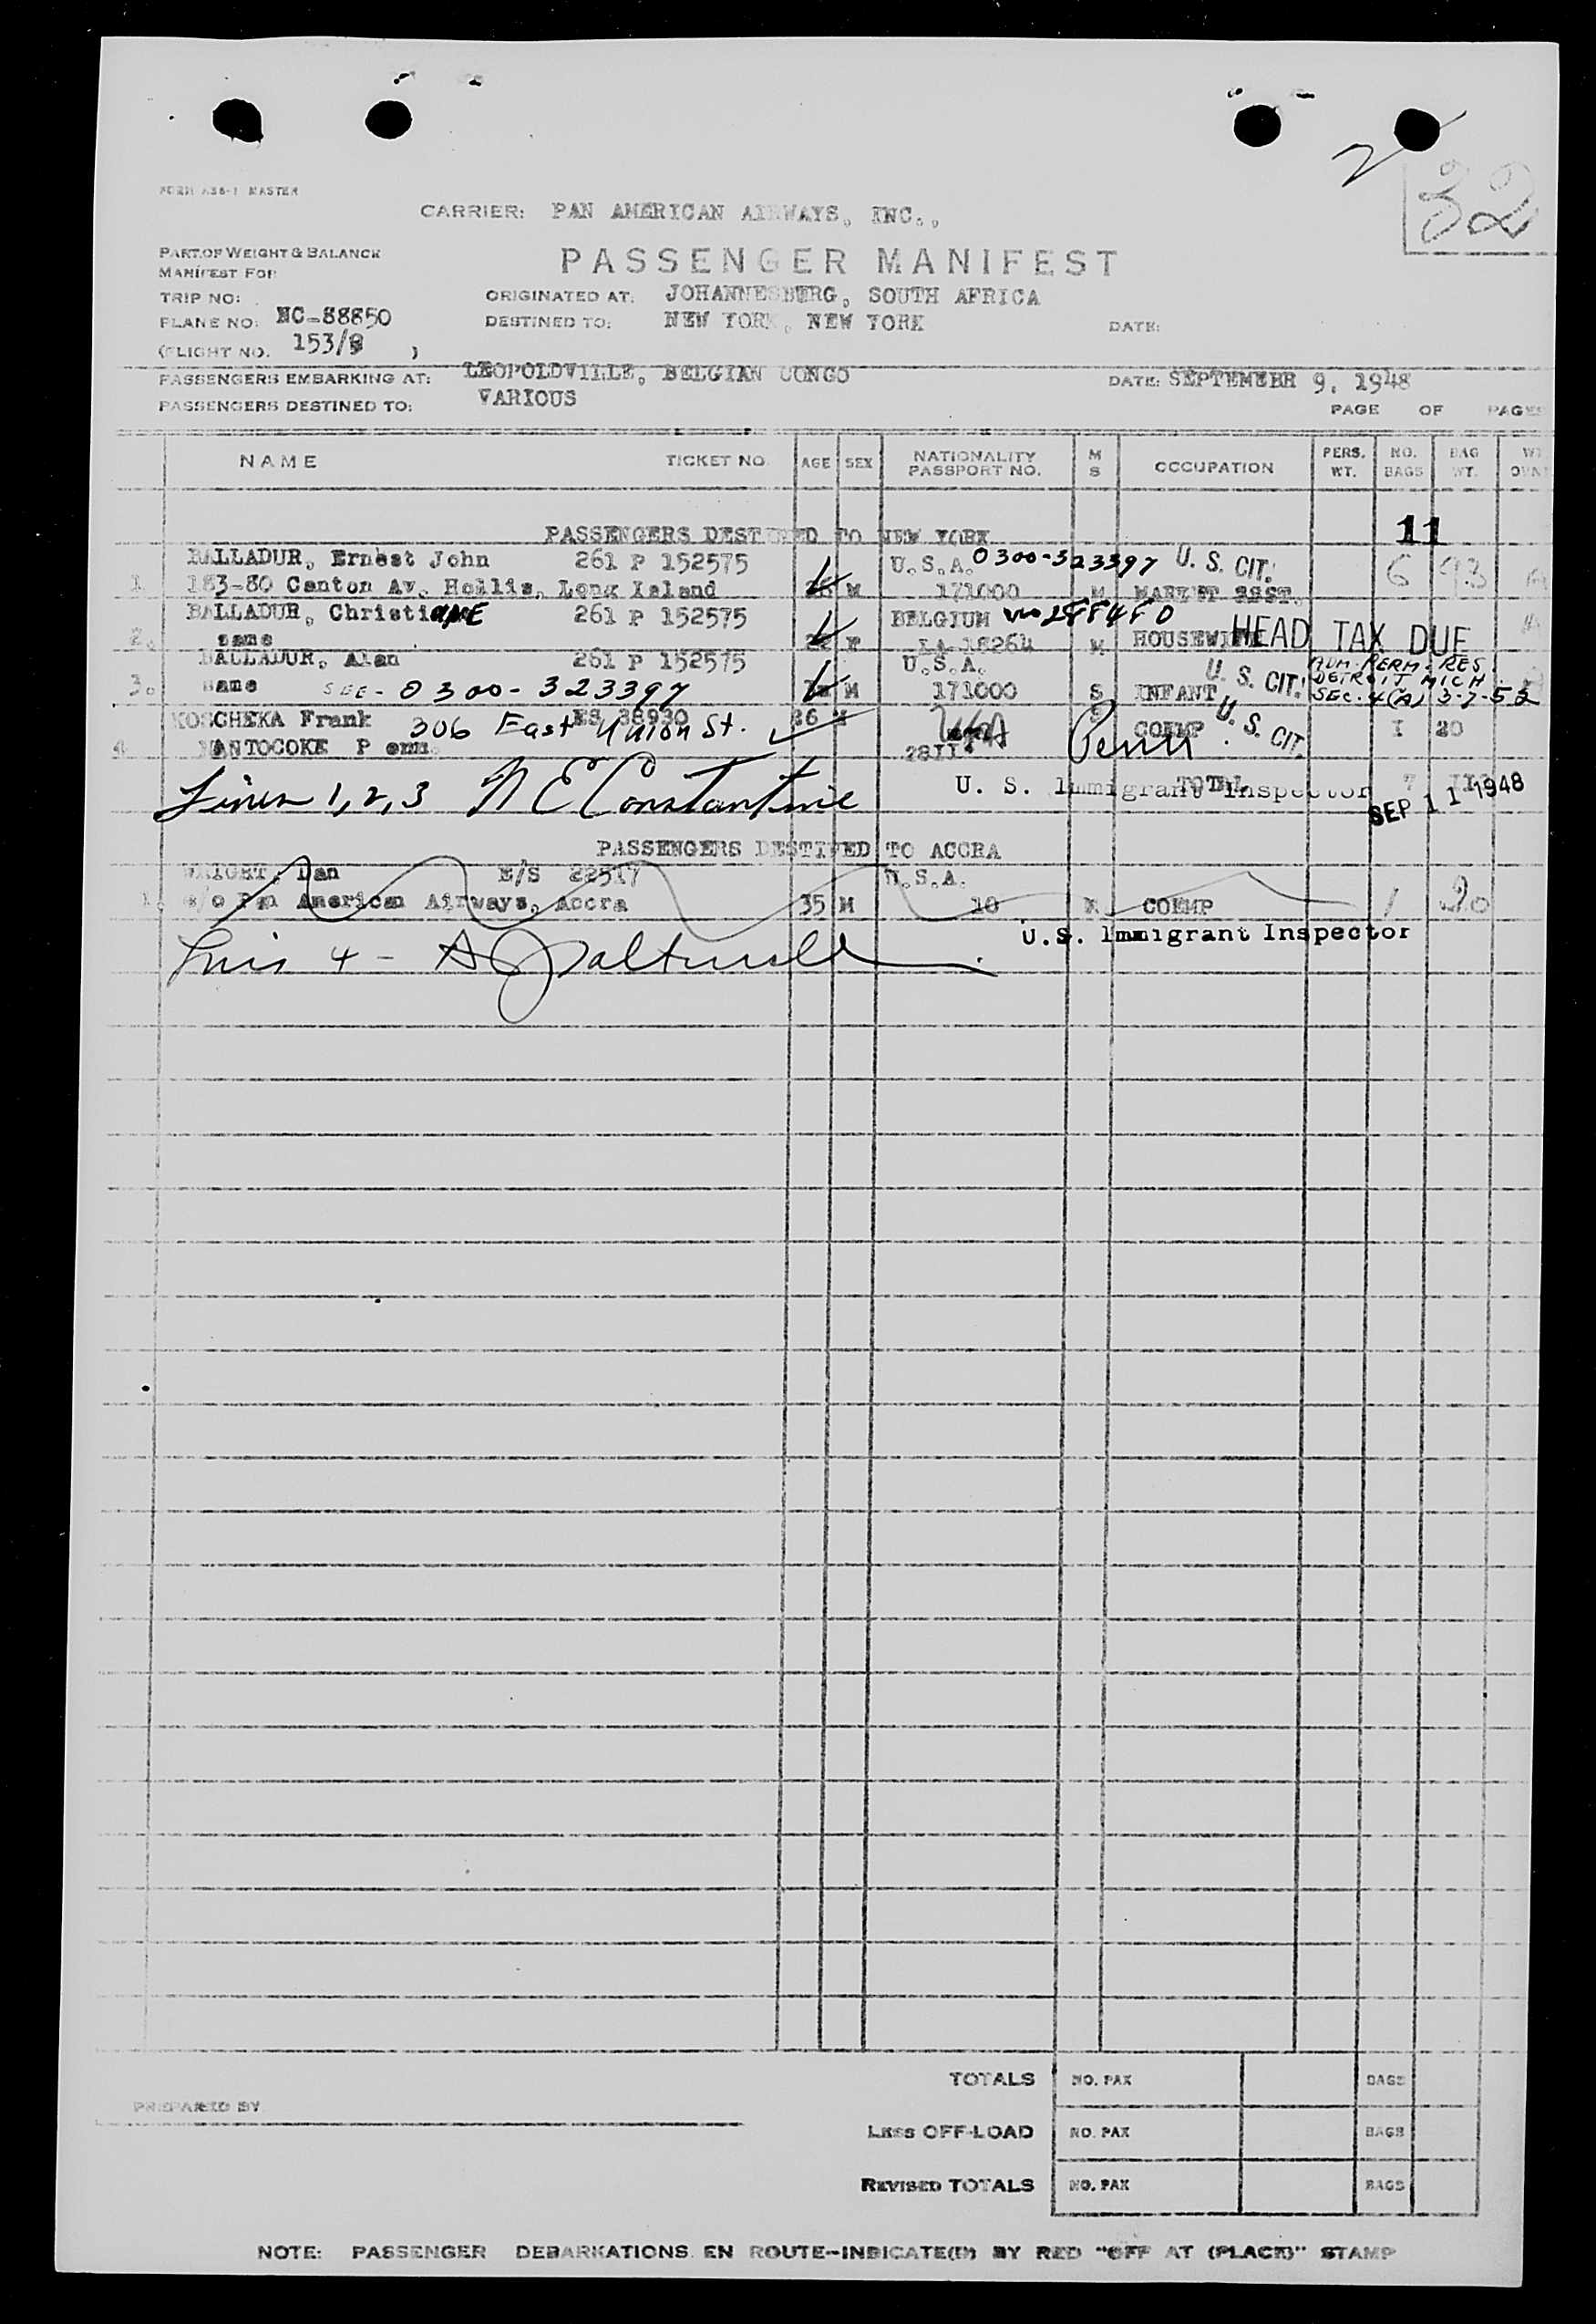 2
32
FORM A36-1 MASTER
CARRIER: PAN AMERICAN AIRWAYS, INC.,
PART OF WEIGHT & BALANCE
MANIFEST FOR
PASSENGER MANIFEST
TRIP NO:
ORIGINATED AT: JOHANNESBURG, SOUTH AFRICA
PLANE NO: NC-88850
DESTINED TO: NEW YORK, NEW YORK
DATE:
(FLIGHT NO. 153/8 )
PASSENGERS EMBARKING AT: LEOPOLDVILLE, BELGIAN CONGO
DATE: SEPTEMEBR 9, 1948
PASSENGERS DESTINED TO: VARIOUS
PAGE OF PAGES
NAME TICKET NO. AGE SEX NATIONALITY PASSPORT NO. M S OCCUPATION PERS. WT. NO. BAGS BAG WT.
11
PASSENGERS DESTINED TO NEW YORK
BALLADUR, Ernest John 261 P 152575 U.S.A. 0300-323397 U. S. CIT.
1. 183-80 Canton Av. Hollis, Long Island M 171000 M MARK'T ASST. 6 93
BALLADUR, Christiane 261 P 152575 BELGIUM 288480
2. same F 18264 M HOUSEWIFE HEAD TAX DUE
BALLADUR, Alan 261 P 152575 U.S.A. U. S. CIT. PERM. RES. DETROIT MICH.
3. same SEE- 0300-323397 M 171000 S INFANT SEC. 4(A) 3-7-52
KOSCHEKA Frank 306 East Union St. ES 38930 26 USA COEMP U. S. CIT. 1 20
4. NANTOCOKE Penn. Penn
Lines 1, 2, 3 N E Constantine U. S. Immigrant Inspector TOTAL 7
SEP 11 1948
PASSENGERS DESTINED TO ACCRA
WRIGHT, Dan E/S 22517 U.S.A.
1. c/o Pan American Airways, Accra 35 M 10 COEMP 1 20
U.S. Immigrant Inspector
4 -
TOTALS NO. PAX BAGS
PREPARED BY
LESS OFF-LOAD NO. PAX BAGS
REVISED TOTALS NO. PAX BAGS
NOTE: PASSENGER DEBARKATIONS EN ROUTE-INDICATE(D) BY RED "OFF AT (PLACE)" STAMP